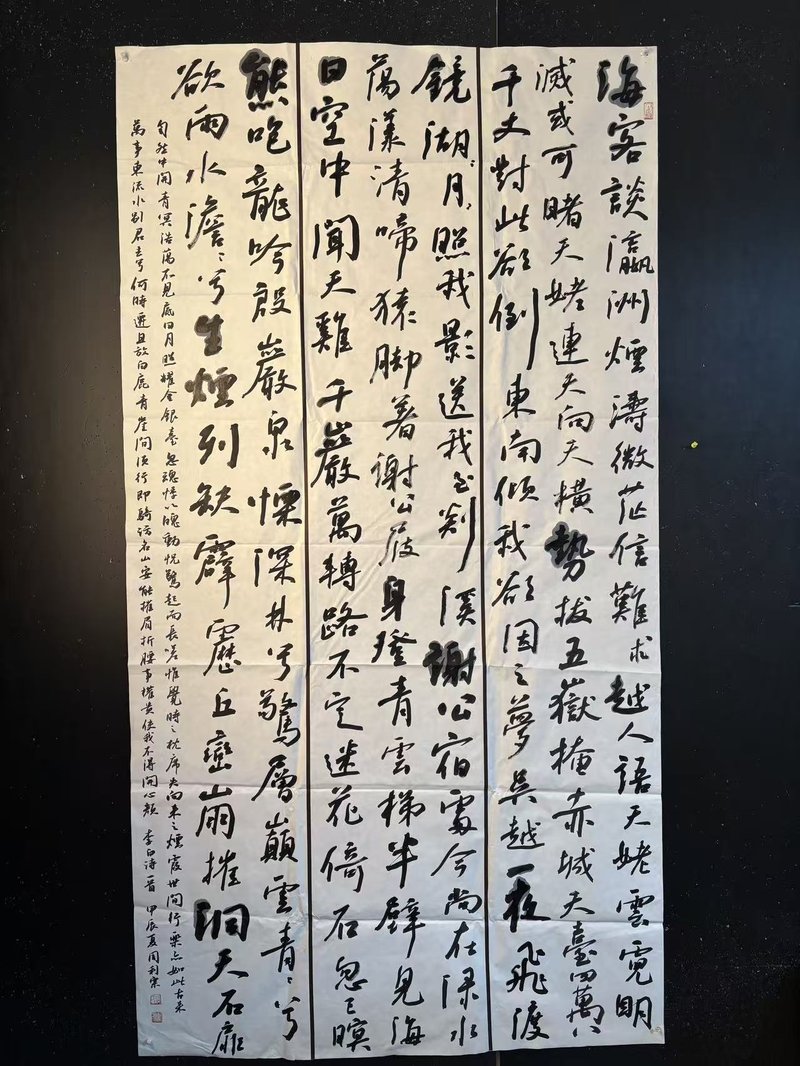 海客談瀛洲煙濤微茫信難求越人語天姥雲霓明
滅或可睹天姥連天向天橫勢拔五嶽掩赤城天臺四萬八
千丈對此欲倒東南傾我欲因之夢吳越一夜飛渡
鏡湖月月照我影送我至剡溪謝公宿處今尚在淥水
蕩漾清啼猿腳著謝公屐身登青雲梯半壁見海
日空中聞天雞千巖萬轉路不定迷花倚石忽已暝
熊咆龍吟殷巖泉慄深林兮驚層巔雲青青兮
欲雨水澹澹兮生煙列缺霹靂丘巒崩摧洞天石扉
訇然中開青冥浩蕩不見底日月照耀金銀臺忽魂悸以魄動怳驚起而長嗟惟覺時之枕席失向來之煙霞世間行樂亦如此古來
萬事東流水別君去兮何時還且放白鹿青崖間須行即騎訪名山安能摧眉折腰事權貴使我不得開心顏 李白詩一首 甲辰夏周利